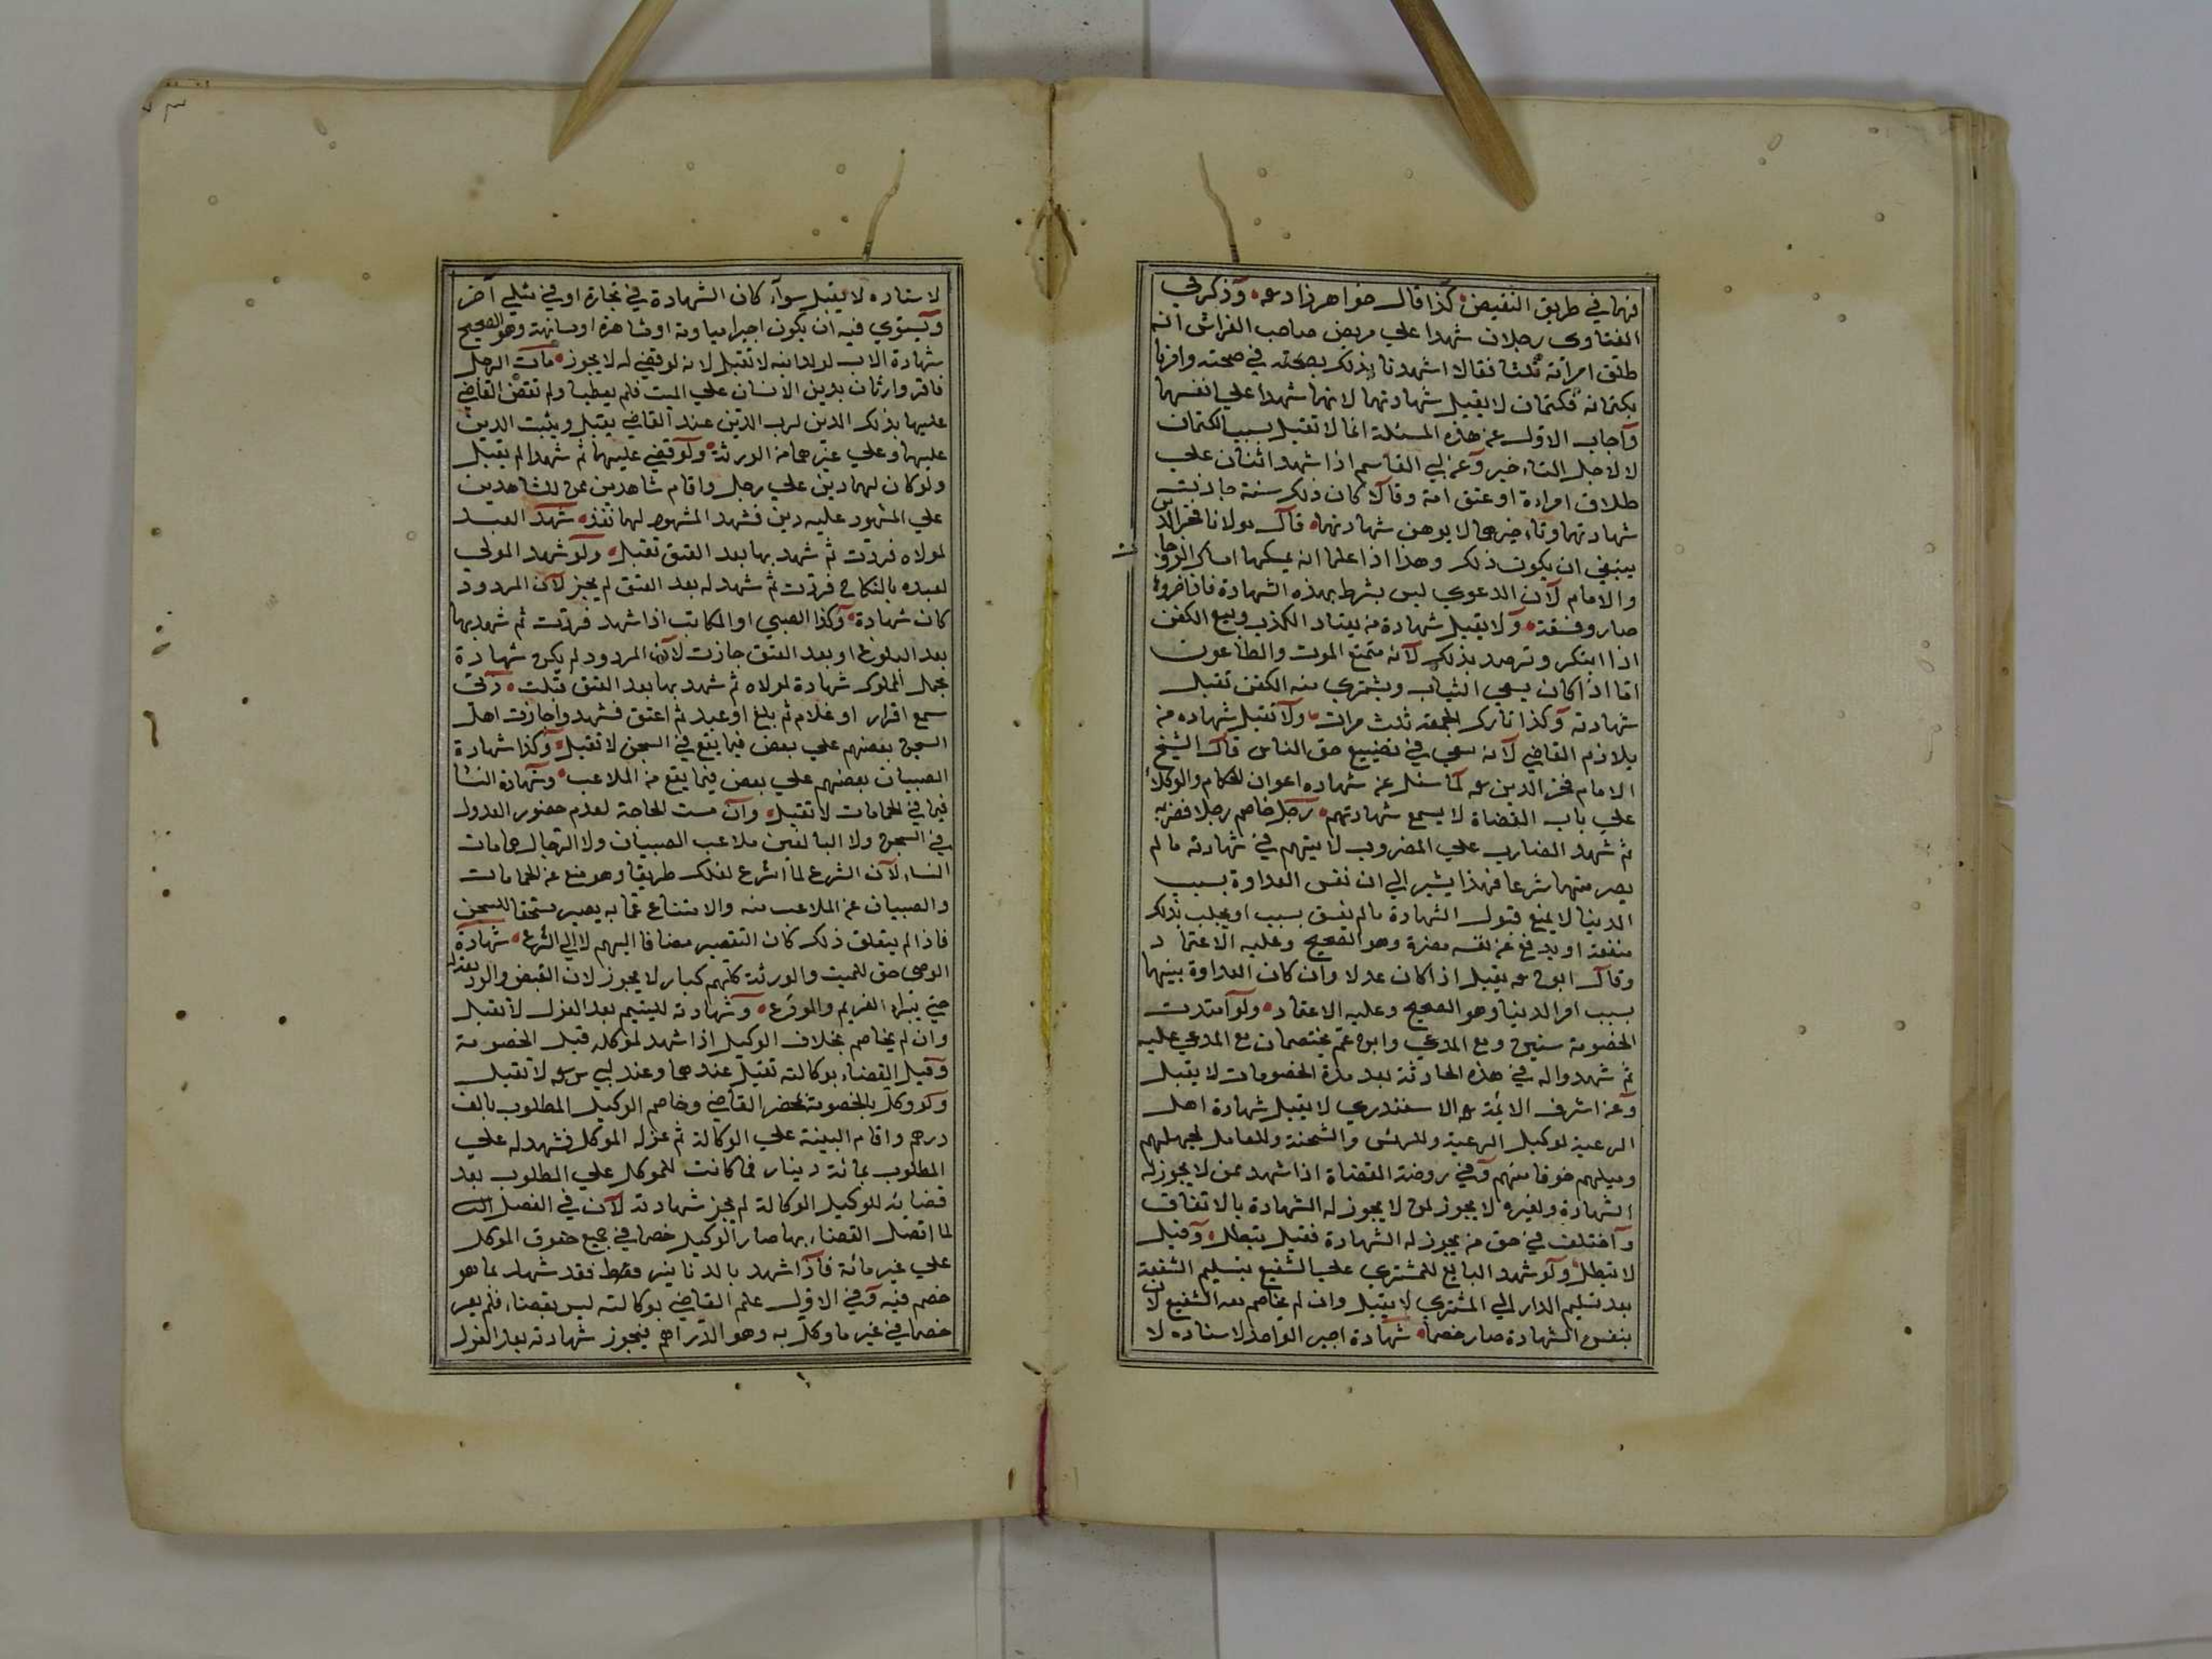 فهما في طريق النقيض كذا قال خواهر زاده رحمه وذكر في
الفتاوى رجلان شهدا علي مريض صاحب الفراش انه
طلق امرأته ثلثا فقالا اشهدنا بذلك بصحته في صحته وامرنا
بكتمانه فكتمان لا يقبل شهادتهما لانهما شهدا علي انفسهما
وأجاب الاول عن هذه المسئلة انما لا تقبل بسبب الكتمان
لا لاجل التاءخير وعن ابي القاسم اذا شهد اثنان علي
طلاق امراءة او عتق امة وقالا كان ذلك سنة جازت
شهادتهما وتاءخيرهما لا يوهن شهادتهما قال مولانا فخر الدين
ينبغي ان يكون ذلك وهذا اذا علما انه يمسكها امساك الزوجات
والاماء لان الدعوي ليس بشرط بهذه الشهادة فاذا اخروه
صاروا فسقة ولا يقبل شهادة من يعتاد الكذب وبيع الكفن
اذا ابتكر وترصد بذلك لانه متمتع الموت والطاعون
اما اذا كان يبيع الثياب ويشتري منه الكفن تقبل
شهادته وكذا تارك الجمعة ثلث مرات ولا تقبل شهاده من
يلازم القاضي لانه سعي في تضييع حق الناس قال الشيخ
الامام فخر الدين رحمه لما سئل عن شهاده اعوان الحكام والوكلاء
علي باب القضاة لا يسمع شهادتهم رجل خاصم رجلا فضربه
ثم شهد الضارب علي المضروب لا يتهم في شهادته ما لم
يصر متهما شرعا فهذا يشير الي ان نفس العداوة بسبب
الدنيا لا يمنع قبول الشهادة ما لم يفسق بسبب او يجلب بذلك
منفعة او يدفع عن نفسه مضرة وهو الصحيح وعليه الاعتماد
وقال ابو ح رحمه يقبل اذا كان عدلا وان كان العداوة بينهما
بسبب امر الدنيا وهو الصحيح وعليه الاعتماد ولو امتدت
الخصومة سنين ومع المدعي وابن عم يختصمان مع المدعي عليه
ثم شهدوا له في هذه الحادثة بعد مدة الخصومات لا يقبل
وعن اشرف الائمة رحمه الاسفندري لا يقبل شهادة اهل
الرعية لوكيل الرعية والرئس والشحنة والعامل لجهلهم
وميلهم خوفا منهم وفي روضة القضاة اذا شهد بمن لا يجوز له
الشهادة ولغيره لا يجوز لمن لا يجوز له الشهادة بالاتفاق
واختلف في حق من يجوز له الشهادة فقيل يبطل وقيل
لا تبطل ولو شهد البايع للمشتري علي الشفيع بتسليم الشفعة
بعد تسليم الدار الي المشتري لا يقبل وان لم يخاصم معه الشفيع لان
بنفس الشهادة صار خصما شهادة اجير الواحد لاستاده لا
لاستاده لا يقبل سوآء كان الشهادة في تجارة او في شئ آخر
ويستوي فيه ان يكون اجيرا مياومة او مشاهرة او مسانهة وهو الصحيح
شهادة الاب لولد ابنه لا تقبل لانه لو قضي له لا يجوز مات الرجل
فاقر وارثان بدين الانسان علي الميت فلم يعطيا ولم يقض القاضي
عليهما بذلك الدين لرب الدين عند القاضي يقبل ويثبت الدين
عليهما وعلي غيرهما من الورثة ولو قضي عليهما ثم شهدا لم يقبل
ولو كان لهما دين علي رجل واقام شاهدين من الشاهدين
علي المشهود عليه دين فشهد المشهود لهما نفذ شهد العبد
لمولاه فردت ثم شهد بها بعد العتق تقبل ولو شهد المولي
لعبده بالنكاح فردت ثم شهد له بعد العتق لم يجز لان المردود
كان شهادة وكذا الصبي او المكاتب اذا شهد فردت ثم شهد بها
بعد البلوغ او بعد العتق جازت لان المردود لم يكن شهادة
تحمل المملوك شهادة لمولاه ثم شهد بها بعد العتق قبلت ذمي
سمع اقرار او غلام ثم بلغ او عبد ثم اعتق فشهدوا جازت اهل
السجن بعضهم علي بعض فيما يقع في السجن لا تقبل وكذا شهادة
الصبيان بعضهم علي بعض فيما يقع من الملاعب وشهادة النساء
فيما في الحمامات لا تقبل وان مست الحاجة لعدم حضور العدول
في السجن ولا البالغين ملاعب الصبيان ولا الرجال حمامات
النساء لان الشرع لما شرع لذلك طريقا وهو منع عن الحمامات
والصبيان عن الملاعب منه والامتناع عما به يصير مستحقا للسجن
فاذا لم يتعلق ذلك كان التقصير مضافا اليهم لا الي الشرع شهادة
الوصي حق للميت والورثة كلهم كبار لا يجوز لان القبض والرد بعد له
حتي يبراء الغريم والمودع وشهادته لليتيم بعد العزل لا تقبل
وان لم يخاصم بخلاف الوكيل اذا شهد لموكله قبل الخصومة
وقبل القضاء بوكالته تقبل عندهما وعند ابي س رحمه لا تقبل
ولو وكل بالخصومة بمحضر القاضي وخاصم الوكيل المطلوب بالف
درهم واقام البينة علي الوكالة ثم عزله الموكل فشهد له علي
المطلوب بمائة دينار فما كانت للموكل علي المطلوب بعد
قضائه للوكيل الوكالة لم يجز شهادته لان في الفصل الثاني
لما اتصل القضاء بها صار الوكيل خصما في جميع حقوق الموكل
علي غير مائة فاذا شهد بالدنانير فقط فقد شهد بما هو
خصم فيه وفي الاول علم القاضي بوكالته ليس بقضاء فلم يصر
خصما في غير ما وكل به وهو الدراهم فيجوز شهادته بعد العزل